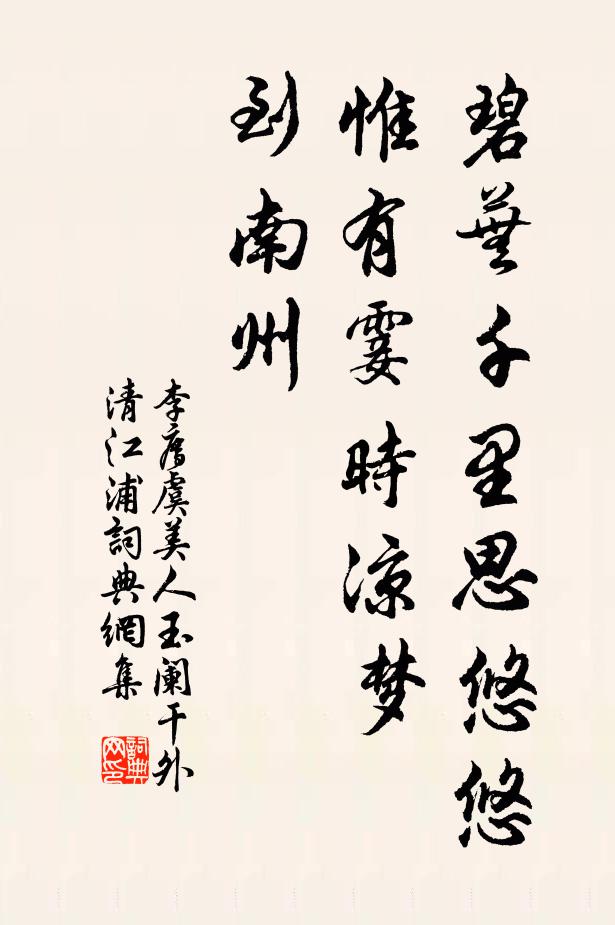 碧蕪千里思悠悠
惟有霎時涼梦
到南州
李廌虞美人玉阑干外
清江浦詞典網集
詞典
网印